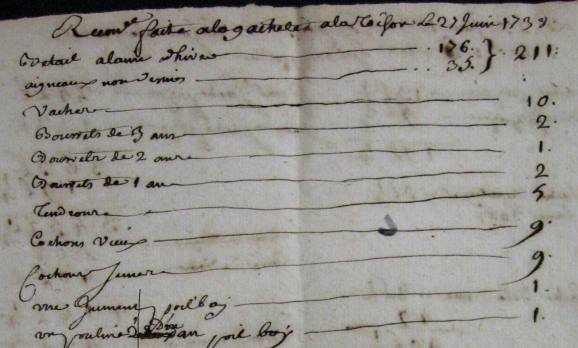 faite a la gachele a la Toison Le 27 Juin 173
Betail a laine d'hiver 176. } 211:
aigneaux non 35.
Vaches 10.
Bourrets de 3 ans 2.
Bourrets de 2 ans 1.
Bourrets de 1 an 2
5
Cochons Vieux 9.
Cochons Jeunes 9.
une Jument poil bay 1.
un pouline d'un an poil bay 1.